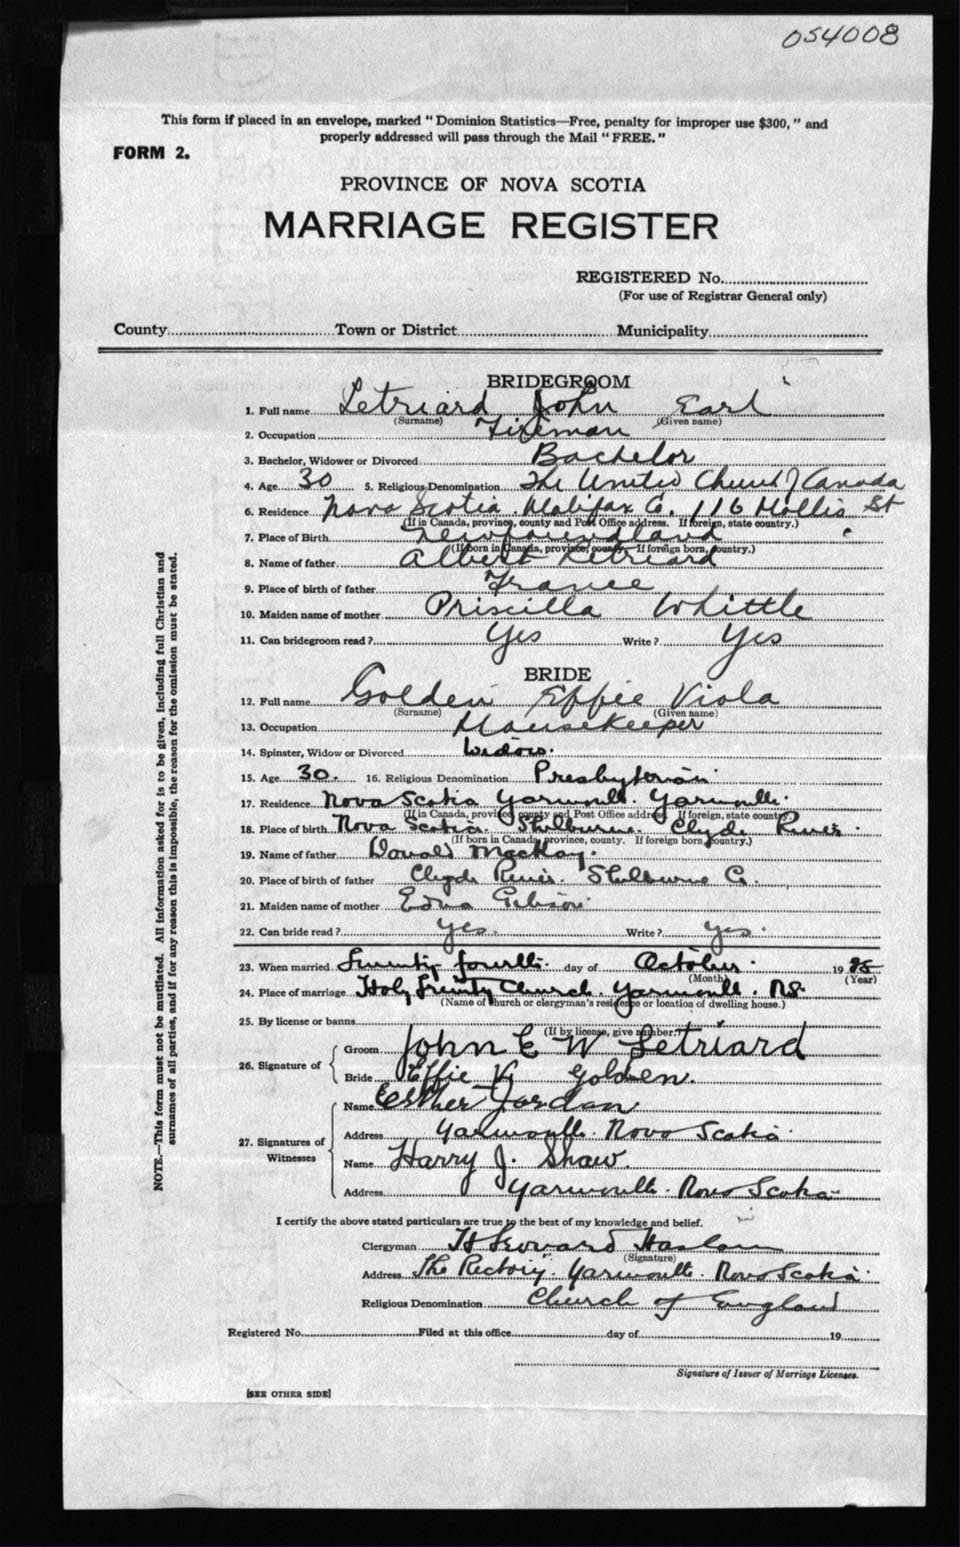 054008
This form if placed in an envelope, marked "Dominion Statistics—Free, penalty for improper use $300," and
properly addressed will pass through the Mail "FREE."
FORM 2.
PROVINCE OF NOVA SCOTIA
MARRIAGE REGISTER
REGISTERED No.
(For use of Registrar General only)
County Town or District Municipality
BRIDEGROOM
1. Full name Letriard John Earl
(Surname) (Given name)
2. Occupation Fireman
3. Bachelor, Widower or Divorced Bachelor
4. Age 30 5. Religious Denomination The United Church of Canada
6. Residence Nova Scotia Halifax Co. 116 Hollis St
(If in Canada, province, county and Post Office address. If foreign, state country.)
7. Place of Birth Newfoundland
(If born in Canada, province, county—If foreign born, country.)
8. Name of father Albert Letriard
9. Place of birth of father France
10. Maiden name of mother Priscilla Whittle
11. Can bridegroom read? Yes Write? Yes
BRIDE
12. Full name Golden Effie Viola
(Surname) (Given name)
13. Occupation Housekeeper
14. Spinster, Widow or Divorced Widow.
15. Age 30. 16. Religious Denomination Presbyterian
17. Residence Nova Scotia Yarmouth. Yarmouth.
(If in Canada, province, county and Post Office address. If foreign, state country)
18. Place of birth Nova Scotia. Shelburne. Clyde River.
(If born in Canada, province, county. If foreign born, country.)
19. Name of father Donald MacKay.
20. Place of birth of father Clyde River. Shelburne Co.
21. Maiden name of mother Edna Gibson
22. Can bride read? yes. Write? yes.
23. When married Twenty fourth. day of October. 19
(Month) (Year)
24. Place of marriage Holy Trinity Church. Yarmouth. NS.
(Name of church or clergyman's residence or location of dwelling house.)
25. By license or banns
(If by license, give number.)
26. Signature of Groom John E W Letriard
Bride Effie V. Golden.
27. Signatures of Witnesses
Name Esther Jordan
Address Yarmouth. Nova Scotia
Name Harry J. Shaw.
Address Yarmouth. Nova Scotia
I certify the above stated particulars are true to the best of my knowledge and belief.
Clergyman Haslam
(Signature)
Address The Rectory. Yarmouth. Nova Scotia
Religious Denomination Church of England
Registered No. Filed at this office day of 19
Signature of Issuer of Marriage Licenses.
[SEE OTHER SIDE]
NOTE.—This form must not be mutilated. All information asked for is to be given, including full Christian and
surnames of all parties, and if for any reason this is impossible, the reason for the omission must be stated.